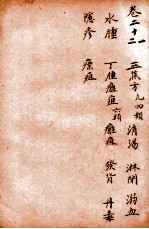 卷二十二
三焦方九四類 消渴 淋閉 溺血
水腫 丁腫癰疽六籍 癰疽 發背 丹毒
隱疹 瘭疽